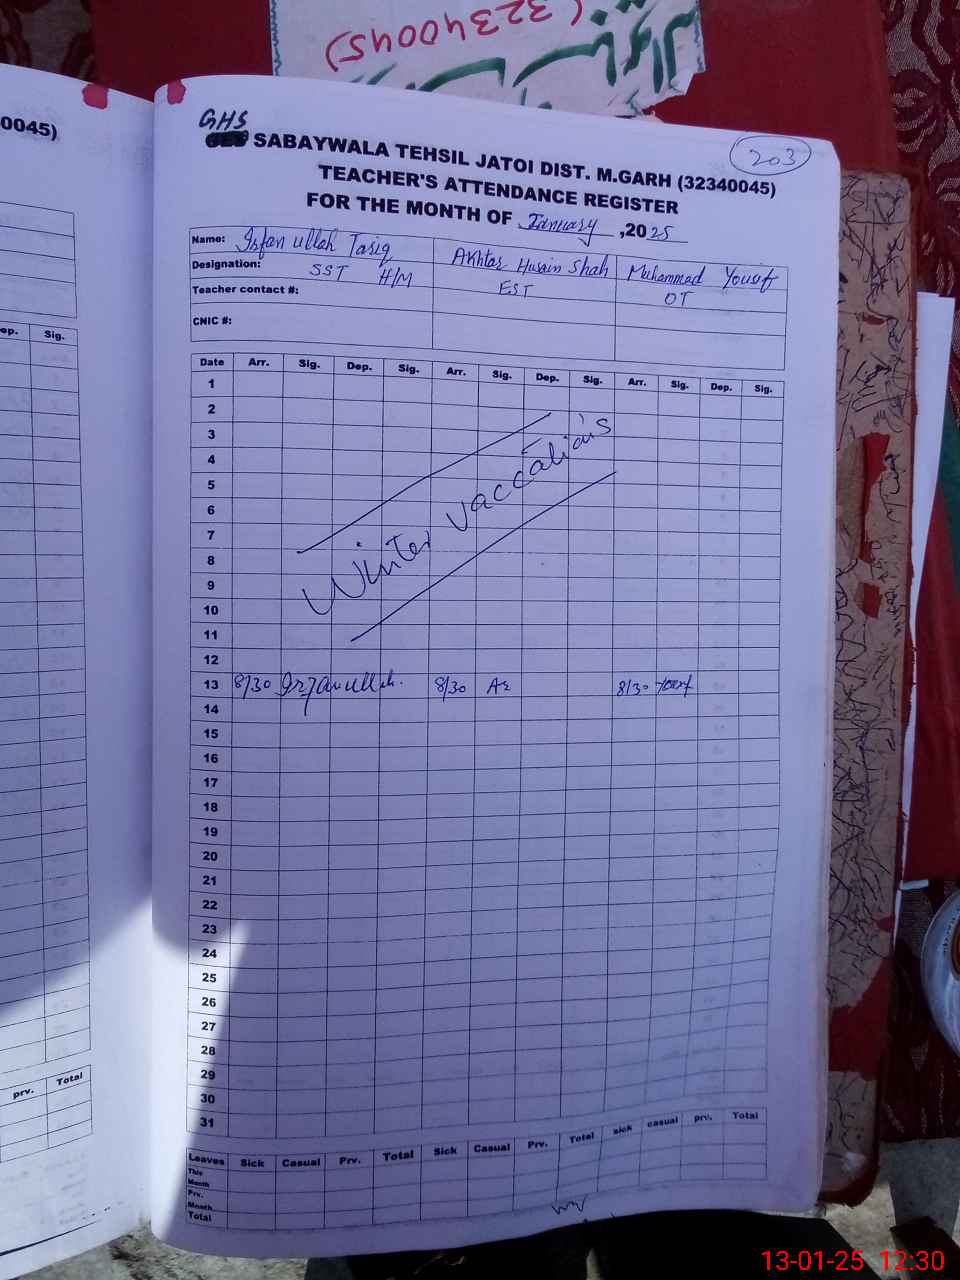 (32340045)
0045)
GHS
SABAYWALA TEHSIL JATOI DIST. M.GARH (32340045)
203
TEACHER'S ATTENDANCE REGISTER
FOR THE MONTH OF January ,2025
Name: Irfan ullah Tariq Akhtar Husain Shah Muhammad Yousf
Designation: SST H/M EST OT
Teacher contact #:
CNIC #:
ep. Sig.
Date Arr. Sig. Dep. Sig. Arr. Sig. Dep. Sig. Arr. Sig. Dep. Sig.
1
2
3
4
5
6
7
8
9
10
11
12
Winter vaccations
13 8/30 Irfanullah. 8/30 8/30 Yousf
14
15
16
17
18
19
20
21
22
23
24
25
26
27
28
29
30
31
prv. Total
Leaves Sick Casual Prv. Total Sick Casual Prv. Total sick casual prv. Total
This Month
Prv. Month
Total
13-01-25 12:30